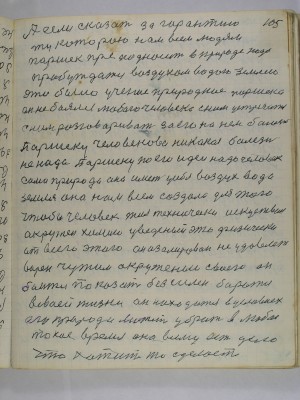 А если сказат за гарантию 105
ту которою нам всем людям
паршек преподносит в природе надо
пробуждати воздухом водою землею
это было учение природное паршека
он не баялся любого человека с ним устречат
с ним розговариват за его на нем балезн
Паршеку человекова никакая балезн
не нада Паршеку по его идеи надо человек
само природа она имеет у себя воздух вода
земля она нам всем создала для этого
чтобы человек жил технически искуствен
окружен химии уведеный это физически
от всего этого оказался не удовлетв
чужим окружение своего он
баится показат без силен боротся
в своей жизни он находится в условиях
его природа может убрат в любое
такое время она всему ест дело
что хатит то сделает